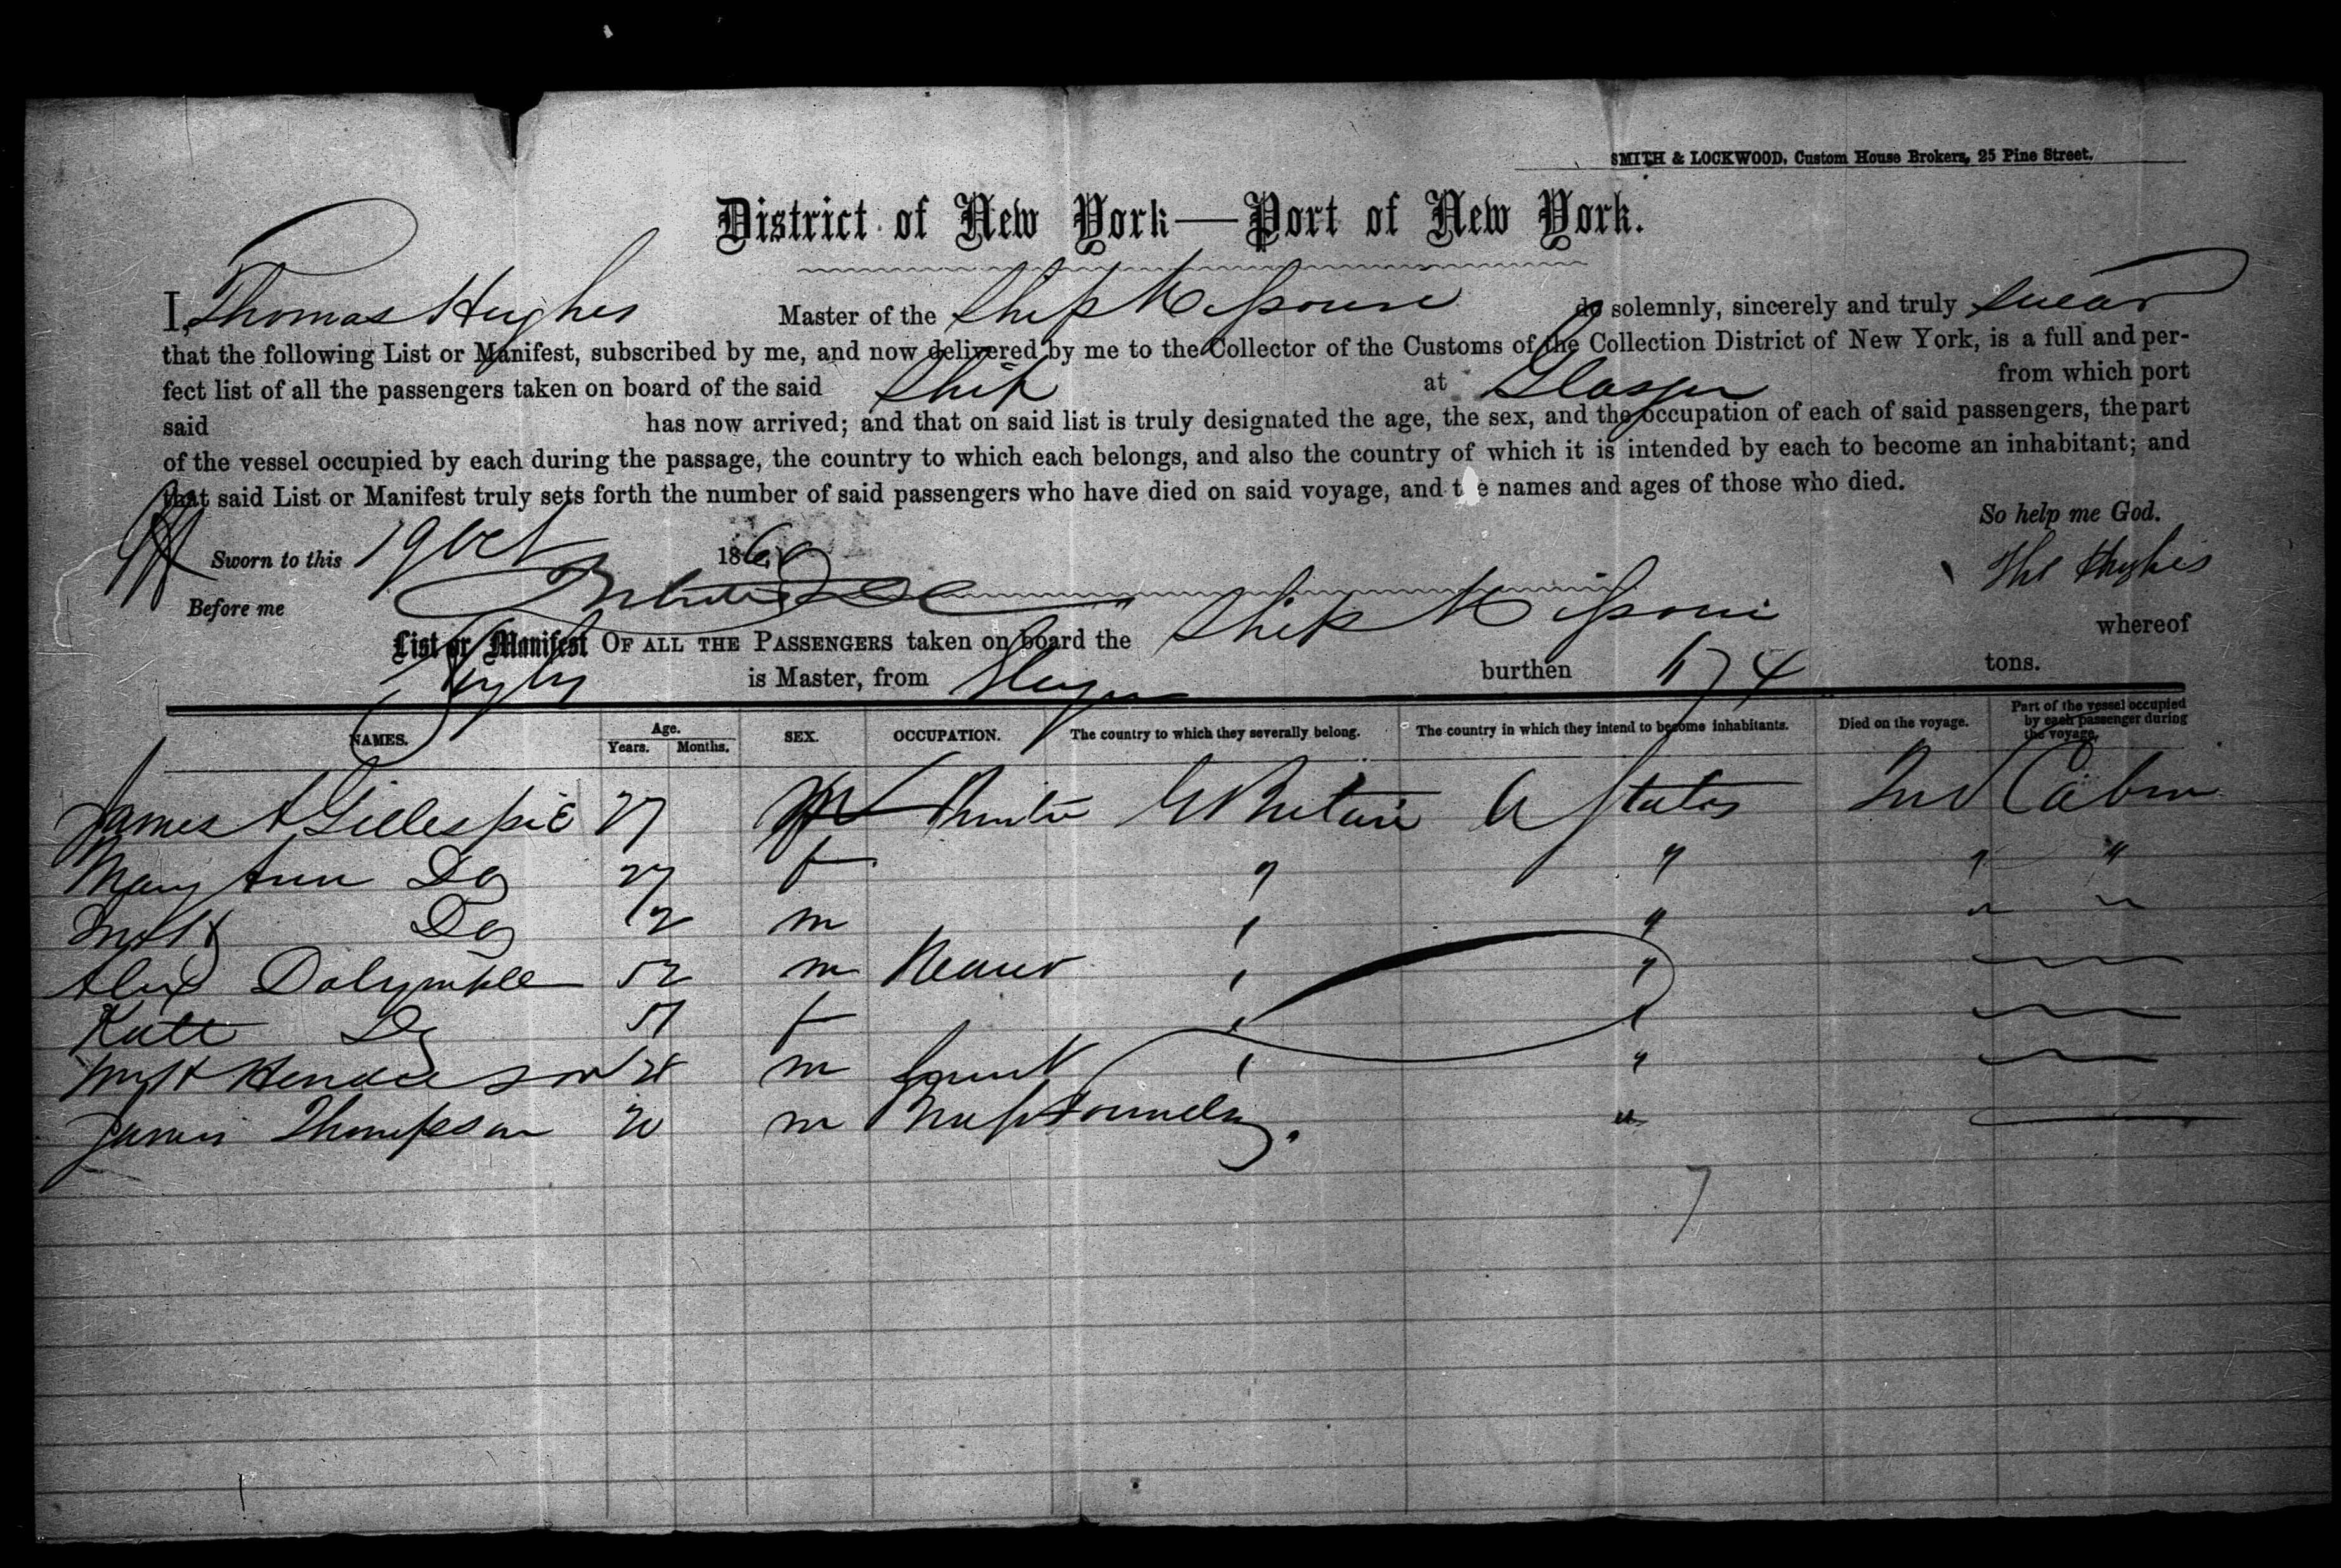 SMITH & LOCKWOOD, Custom House Brokers, 25 Pine Street.
District of New York—Port of New York.
I, Thomas Hughes Master of the Ship Missouri do solemnly, sincerely and truly swear
that the following List or Manifest, subscribed by me, and now delivered by me to the Collector of the Customs of the Collection District of New York, is a full and per-
fect list of all the passengers taken on board of the said Ship at Glasgow from which port
said has now arrived; and that on said list is truly designated the age, the sex, and the occupation of each of said passengers, the part
of the vessel occupied by each during the passage, the country to which each belongs, and also the country of which it is intended by each to become an inhabitant; and
that said List or Manifest truly sets forth the number of said passengers who have died on said voyage, and the names and ages of those who died.
So help me God.
Sworn to this 19 Oct 1860
Thos Hughes
Before me
List or Manifest OF ALL THE PASSENGERS taken on board the Ship Missouri whereof
Hughes is Master, from Glasgow burthen tons.
NAMES. Age. Years. Months. SEX. OCCUPATION. The country to which they severally belong. The country in which they intend to become inhabitants. Died on the voyage. Part of the vessel occupied by each passenger during the voyage.
James A Gillespie 27 M G Britain U States 2nd Cabin
Mary Ann Do 27 f " " " "
Do 12 m " " " "
Alex Dalrymple 52 m " "
Kate Do 51 f " "
Henderson 28 m " "
James Thompson 20 m "
7